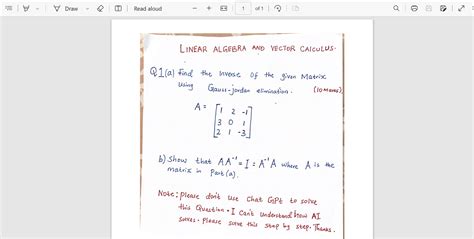 Draw
Read aloud
1 of 1
LINEAR ALGEBRA AND VECTOR CALCULUS.
Q1(a) find the Inverse Of the given Matrix
using Gauss-jordan elimination. (10 Marks)
A = [1 2 -1
3 0 1
2 1 -3]
b) Show that AA⁻¹ = I = A⁻¹A where A is the
matrix in part (a).
Note: please don't use Chat GPt to solve
this Question. I Can't understand how AI
solves. Please solve this step by step. Thanks.